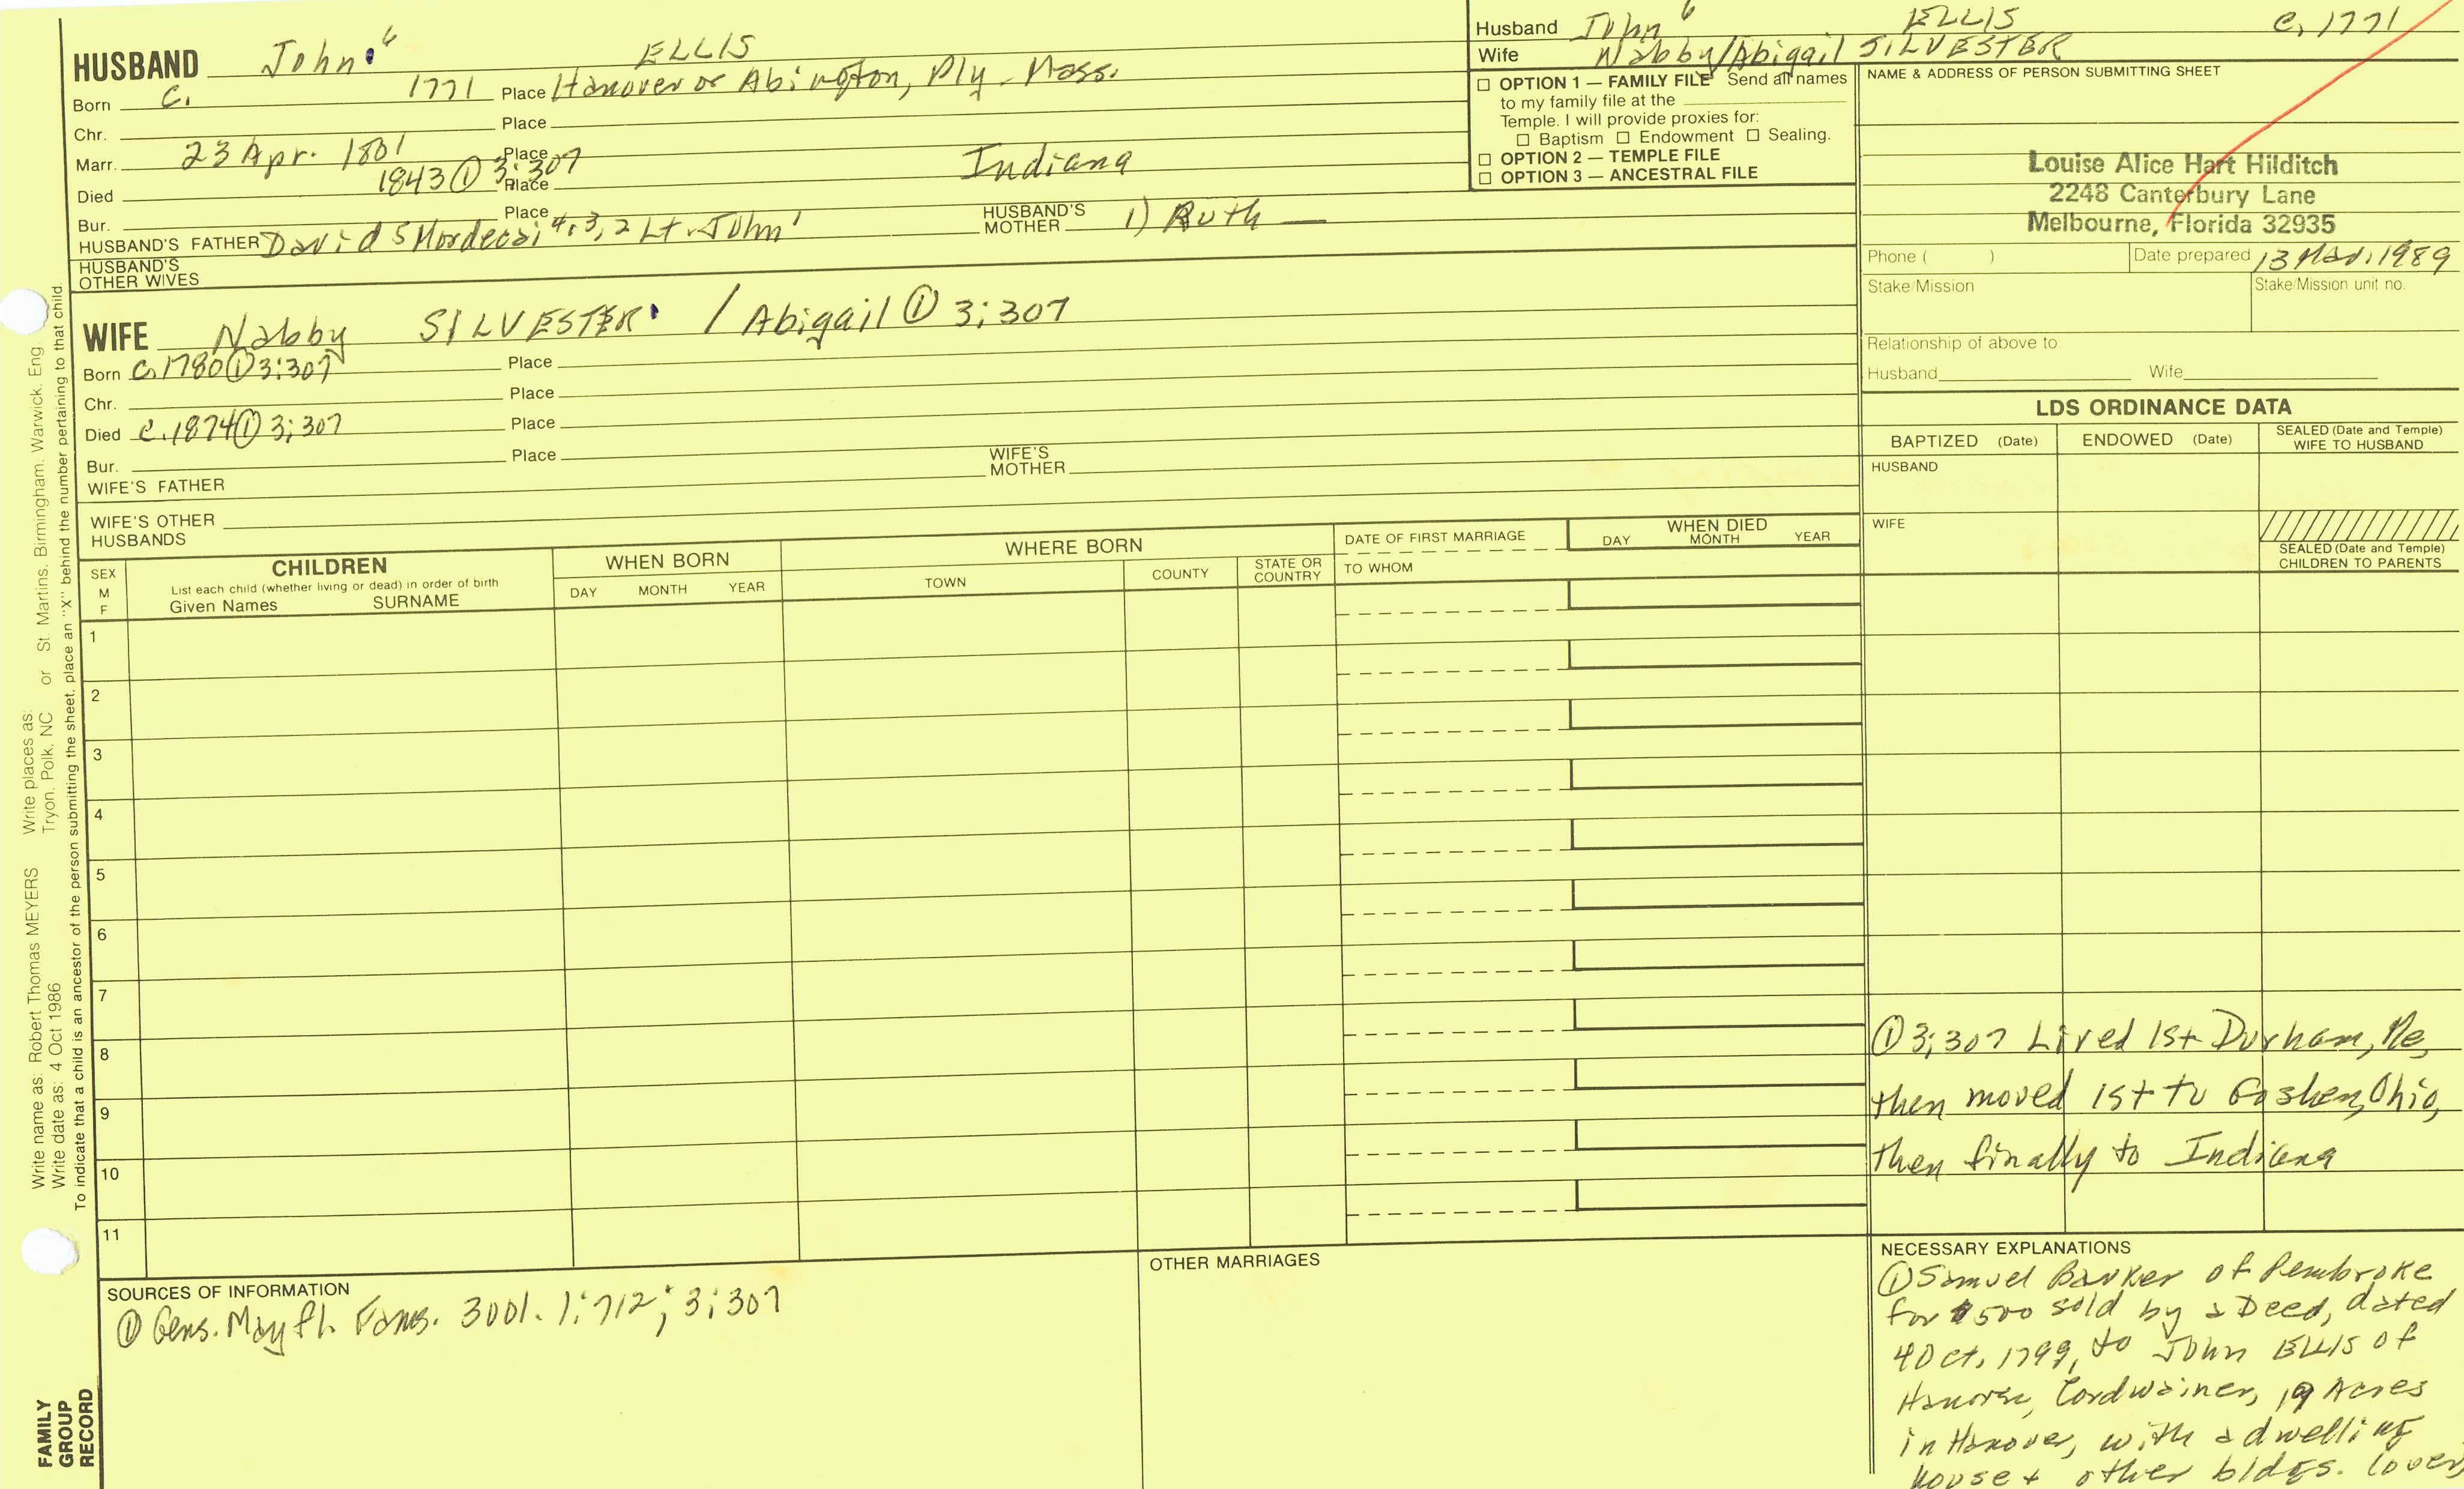 HUSBAND John⁶ ELLIS
Born c. 1771 Place Hanover or Abington, Ply - Mass.
Chr. Place
Marr. 23 Apr. 1801 Place
Died 1843 ① 3:307 Place Indiana
Bur. Place
HUSBAND'S FATHER David⁵ Mordecai⁴,³,² Lt. John¹ HUSBAND'S MOTHER 1) Ruth —
HUSBAND'S OTHER WIVES
WIFE Nabby SILVESTER / Abigail ① 3:307
Born c. 1780 ① 3:307 Place
Chr. Place
Died c. 1874 ① 3:307 Place
Bur. Place
WIFE'S FATHER WIFE'S MOTHER
WIFE'S OTHER HUSBANDS
Husband John⁶ ELLIS c. 1771
Wife Nabby/Abigail SILVESTER
☐ OPTION 1 — FAMILY FILE Send all names
to my family file at the
Temple. I will provide proxies for:
☐ Baptism ☐ Endowment ☐ Sealing.
☐ OPTION 2 — TEMPLE FILE
☐ OPTION 3 — ANCESTRAL FILE
NAME & ADDRESS OF PERSON SUBMITTING SHEET
Louise Alice Hart Hilditch
2248 Canterbury Lane
Melbourne, Florida 32935
Phone ( ) Date prepared 13 Mar. 1989
Stake/Mission Stake/Mission unit no.
Relationship of above to:
Husband Wife
LDS ORDINANCE DATA
BAPTIZED (Date) ENDOWED (Date) SEALED (Date and Temple) WIFE TO HUSBAND
HUSBAND
WIFE
SEALED (Date and Temple)
CHILDREN TO PARENTS
SEX
M
F
CHILDREN
List each child (whether living or dead) in order of birth
Given Names SURNAME
WHEN BORN
DAY MONTH YEAR
WHERE BORN
TOWN COUNTY STATE OR COUNTRY
DATE OF FIRST MARRIAGE
TO WHOM
WHEN DIED
DAY MONTH YEAR
1
2
3
4
5
6
7
8
9
10
11
① 3:307 Lived 1st Durham, Me,
then moved 1st to Goshen, Ohio,
then finally to Indiana
SOURCES OF INFORMATION
① Gens. Mayfl. Fams. 3vol. 1:712; 3:307
OTHER MARRIAGES
NECESSARY EXPLANATIONS
① Samuel Barker of Pembroke
for $500 sold by a Deed, dated
4 Oct, 1799, to John Ellis of
Hanover, Cordwainer, 19 Acres
in Hanover, with a dwelling
house + other bldgs. (over)
Write name as: Robert Thomas MEYERS Write places as: or St. Martins, Birmingham, Warwick, Eng.
Write date as: 4 Oct 1986 Tryon, Polk, NC
To indicate that a child is an ancestor of the person submitting the sheet, place an "X" behind the number pertaining to that child.
FAMILY
GROUP
RECORD